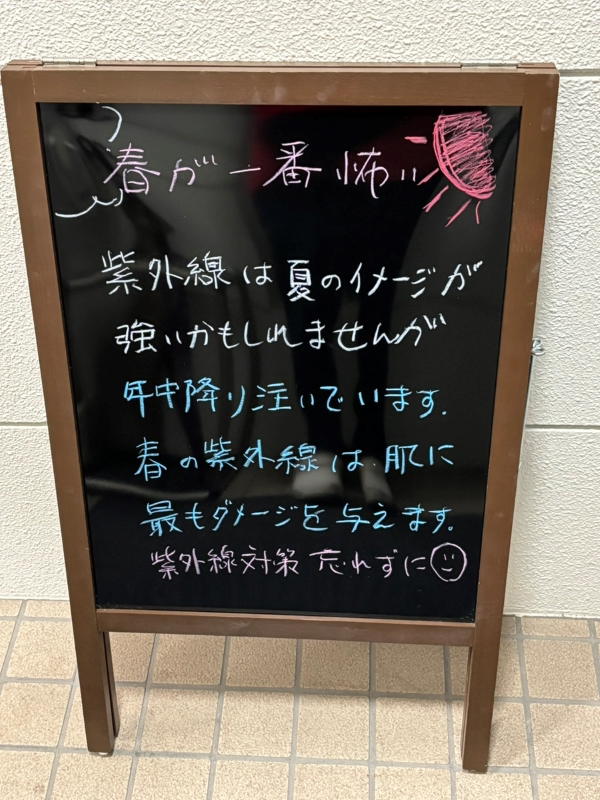 春が一番怖い
紫外線は夏のイメージが
強いかもしれませんが
年中降り注いでいます.
春の紫外線は肌に
最もダメージを与えます。
紫外線対策 忘れずに